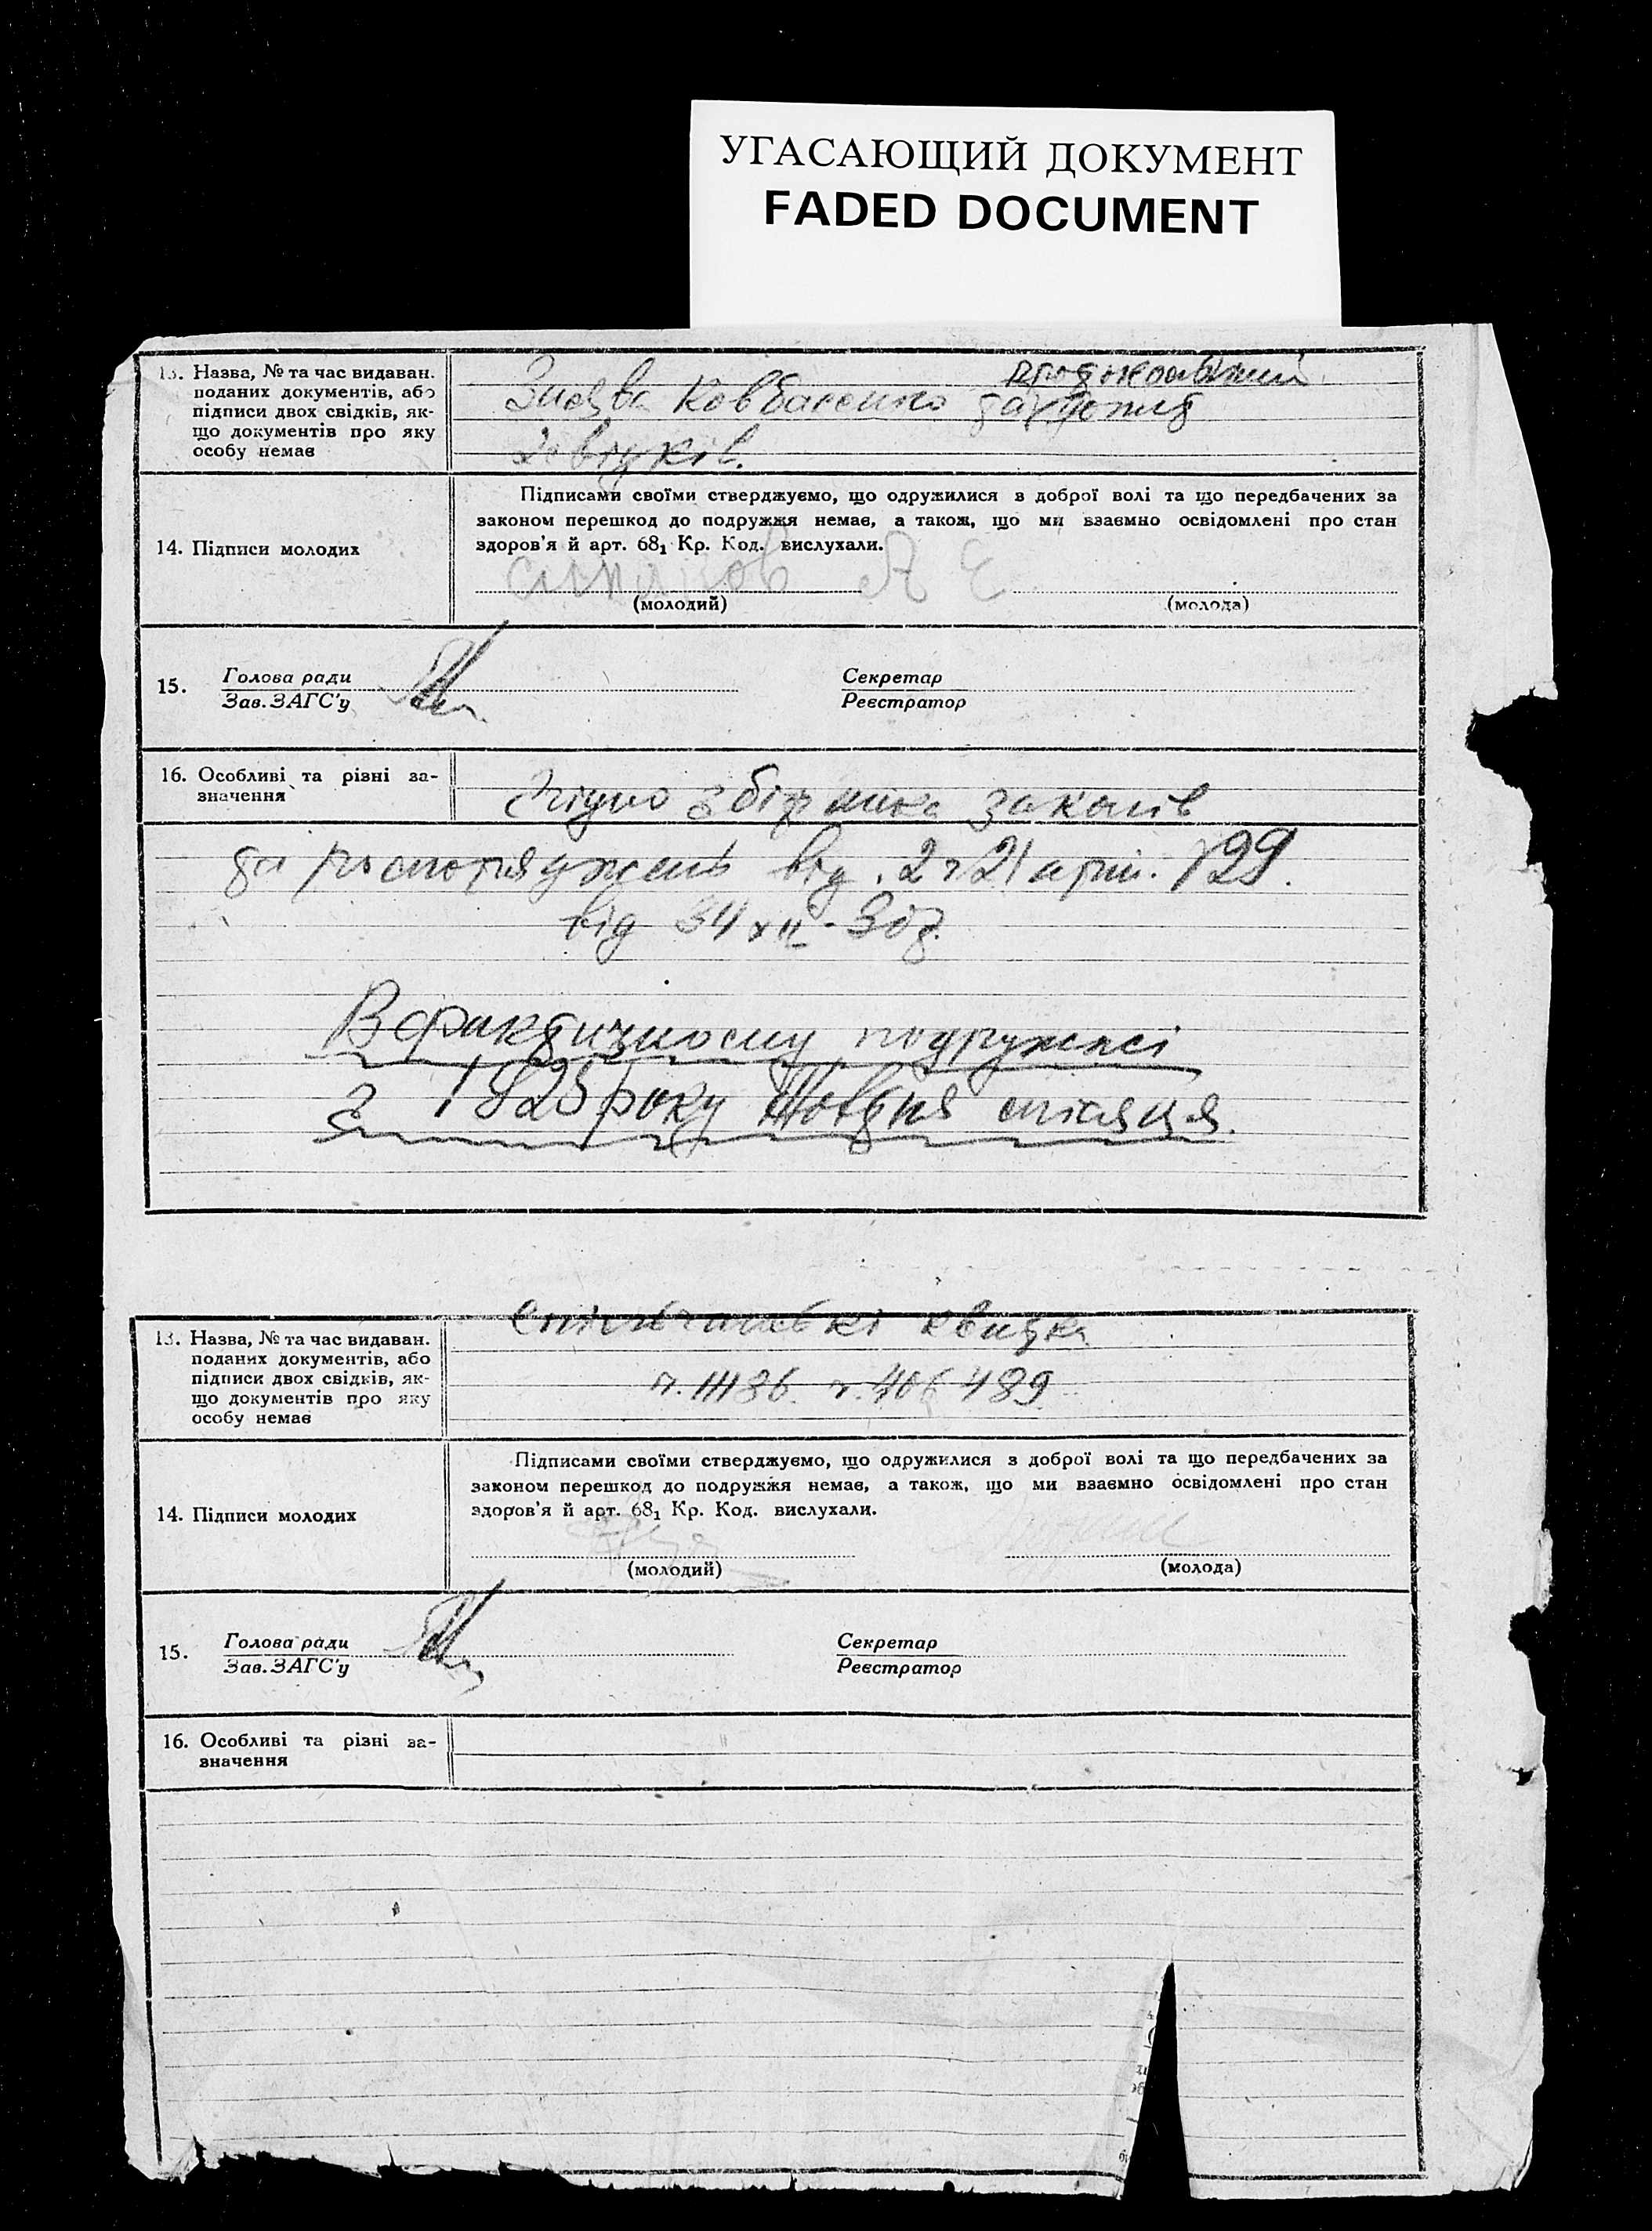 УГАСАЮЩИЙ ДОКУМЕНТ
FADED DOCUMENT
13. Назва, № та час видаван.
поданих документів, або
підписи двох свідків, як-
що документів про яку
особу немає
Ковбасенко
14. Підписи молодих
Підписами своїми стверджуємо, що одружилися з доброї волі та що передбачених за
законом перешкод до подружжя немає, а також, що ми взаємно освідомлені про стан
здоров'я й арт. 68₁ Кр. Код. вислухали.
А Е
(молодий) (молода)
15. Голова ради
Зав. ЗАГС'у
Секретар
Реєстратор
16. Особливі та різні за-
значення
Згідно збірника законів
та розпоряджень від
від XII-30р.
В фактичному подружжі
з 1925 року Жовтня місяця.
13. Назва, № та час видаван.
поданих документів, або
підписи двох свідків, як-
що документів про яку
особу немає
квитки
14. Підписи молодих
Підписами своїми стверджуємо, що одружилися з доброї волі та що передбачених за
законом перешкод до подружжя немає, а також, що ми взаємно освідомлені про стан
здоров'я й арт. 68₁ Кр. Код. вислухали.
(молодий) (молода)
15. Голова ради
Зав. ЗАГС'у
Секретар
Реєстратор
16. Особливі та різні за-
значення